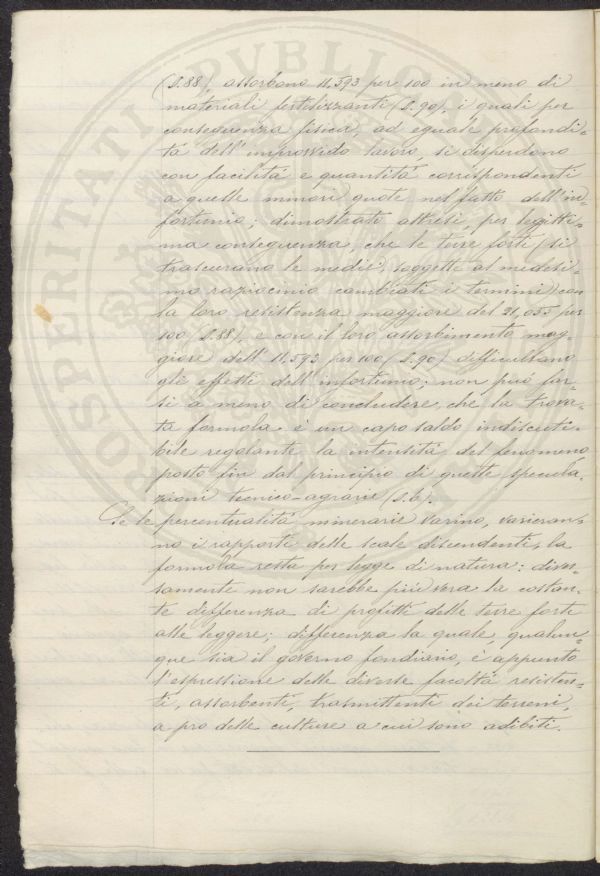 (S. 88), assorbono 11.593 per 100 in meno di
materiali fertilizzanti (S. 90), i quali per
conseguenza fisica, ad eguale profondi-
tà dell'improvvido lavoro, si disperdono
con facilità e quantità corrispondenti
a quelle minori quote nel fatto dell'in-
fortunio; dimostrato altresì, per legitti-
ma conseguenza, che le terre forti (si
trascurano le medie, soggette al medesi-
mo raziocinio cambiati i termini) con
la loro resistenza maggiore del 21,055 per
100 (S. 88), e con il loro assorbimento mag-
giore dell'11,593 per 100 (S. 90) difficultano
gli effetti dell'infortunio; non può far-
si a meno di concludere, che la trova-
ta formola è un capo saldo indiscuti-
bile regolante la intensità del fenomeno
posto fin dal principio di queste specula-
zioni tecnico-agrarie (S. 6).
Se le percentualità minerarie varino, varieran-
no i rapporti delle scale discendenti, la
formola resta per legge di natura: diver-
samente non sarebbe più vera la costan-
te differenza di profitti delle terre forti
alle leggere; differenza la quale, qualun-
que sia il governo fondiario, è appunto
l'espressione delle diverse facoltà resisten-
ti, assorbenti, trasmittenti dei terreni,
a pro delle culture a cui sono adibiti.
PROSPERITATI PVBLICAE